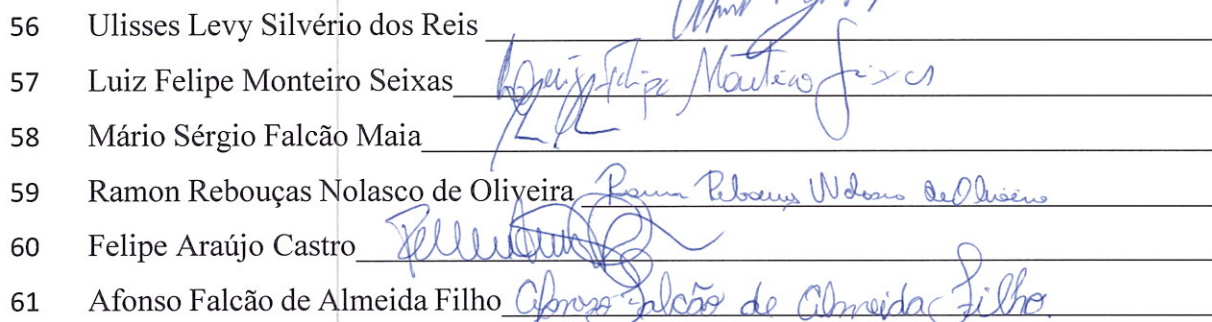 56 Ulisses Levy Silvério dos Reis
57 Luiz Felipe Monteiro Seixas Luiz Felipe Monteiro Seixas
58 Mário Sérgio Falcão Maia
59 Ramon Rebouças Nolasco de Oliveira Ramon Rebouças Nolasco de Oliveira
60 Felipe Araújo Castro
61 Afonso Falcão de Almeida Filho Afonso Falcão de Almeida Filho.